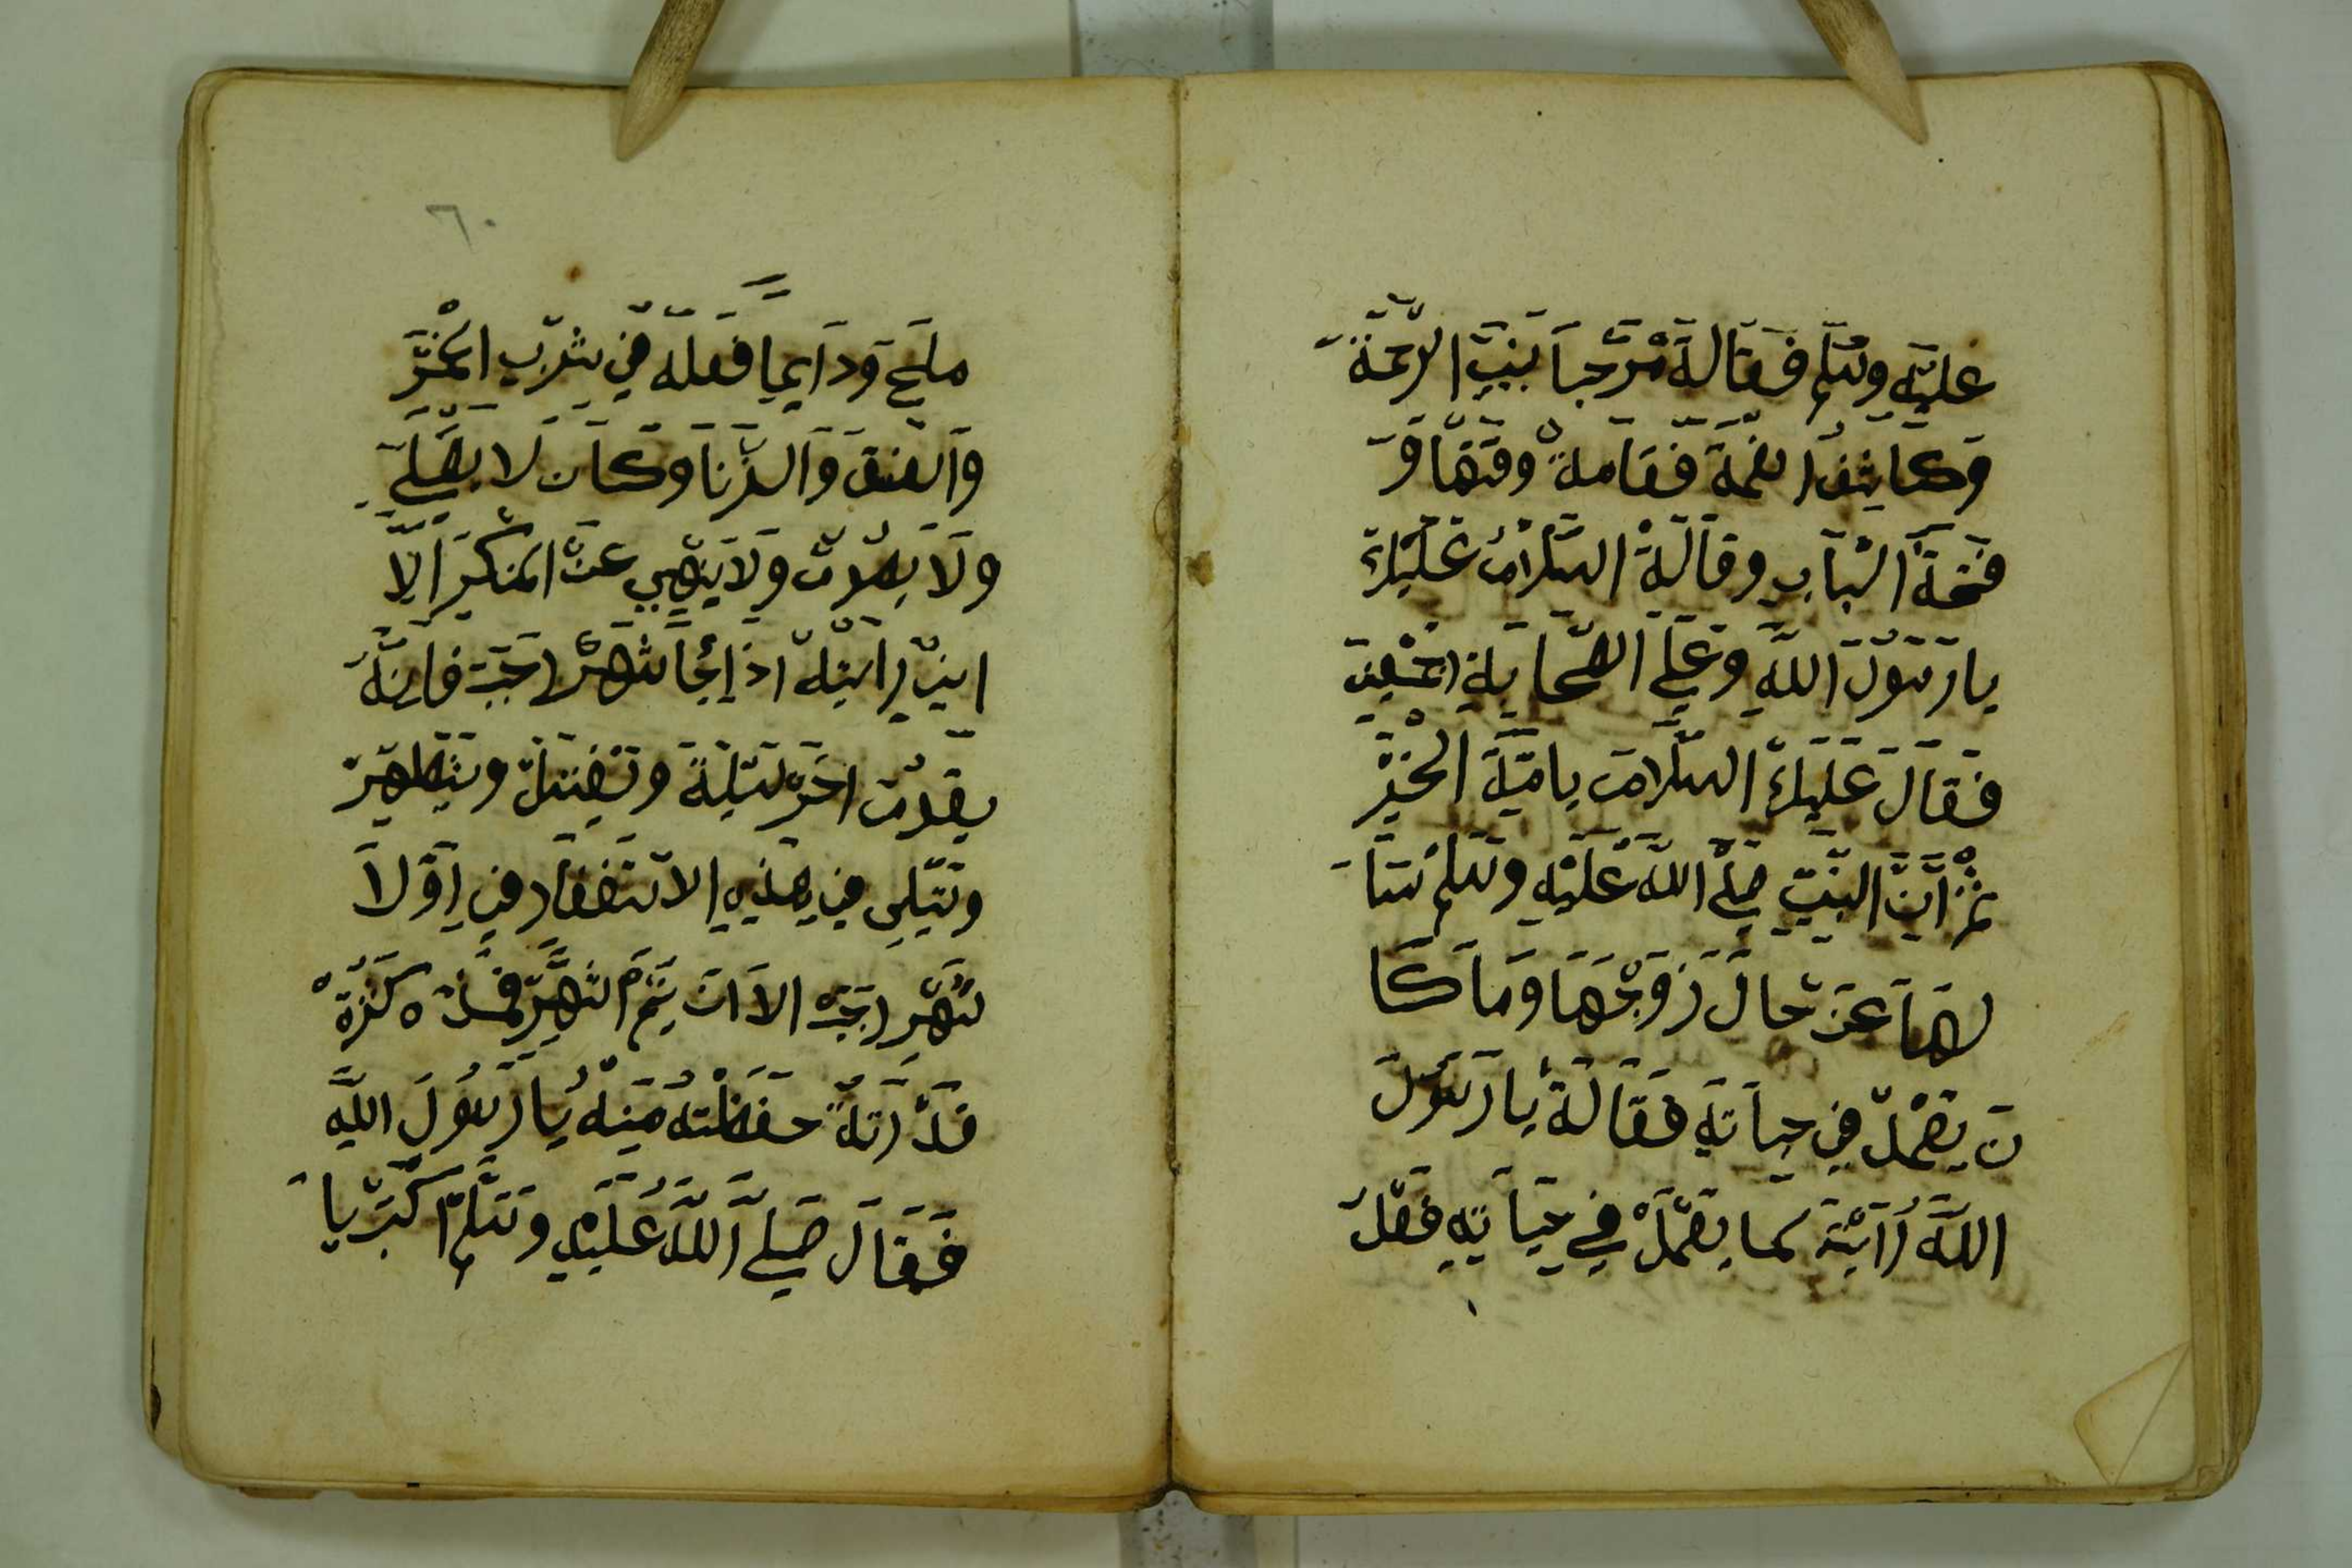 عليه وسلم فقالة مرحبا بنبي الرحمة
وكاشف الغمة فقامة وقتها و
فتحة الباب وقالة السلام عليك
يا رسول الله وعلي الصحابة اجمعين
فقال عليك السلام يا مية الخير
ثم ان النبي صلي الله عليه وسلم سا
لها عن حال زوجها وما كا
ن يعمل في حياته فقالة يا رسول
الله راية كما يعمل في حياته فعل
٦٠
مليح ودايما فعله في شرب الخمر
والفسق والزنا وكان لا يصلي
ولا يصوم ولا ينهي عن المنكر الا
اني رايته اذا جا شهر رجب فانه
يقوم اخر ليلة وتغتسل ويتطهر
ويتلي في هذه الاستغفار في اولا
شهر رجب الا ان يتم الشهر فمن كثرة
قراته حفظته منه يا رسول الله
فقال صلي الله عليه وسلم اكبر يا